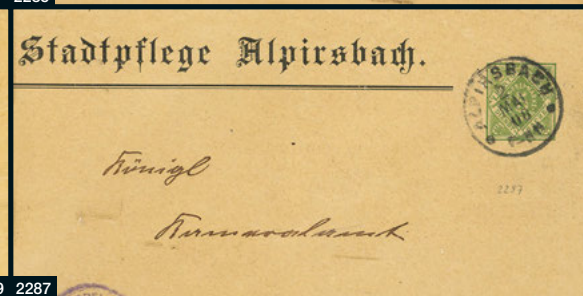 Stadtpflege Alpirsbach.
ALPIRSBACH
Königl
Kameralamt
2287
9 2287